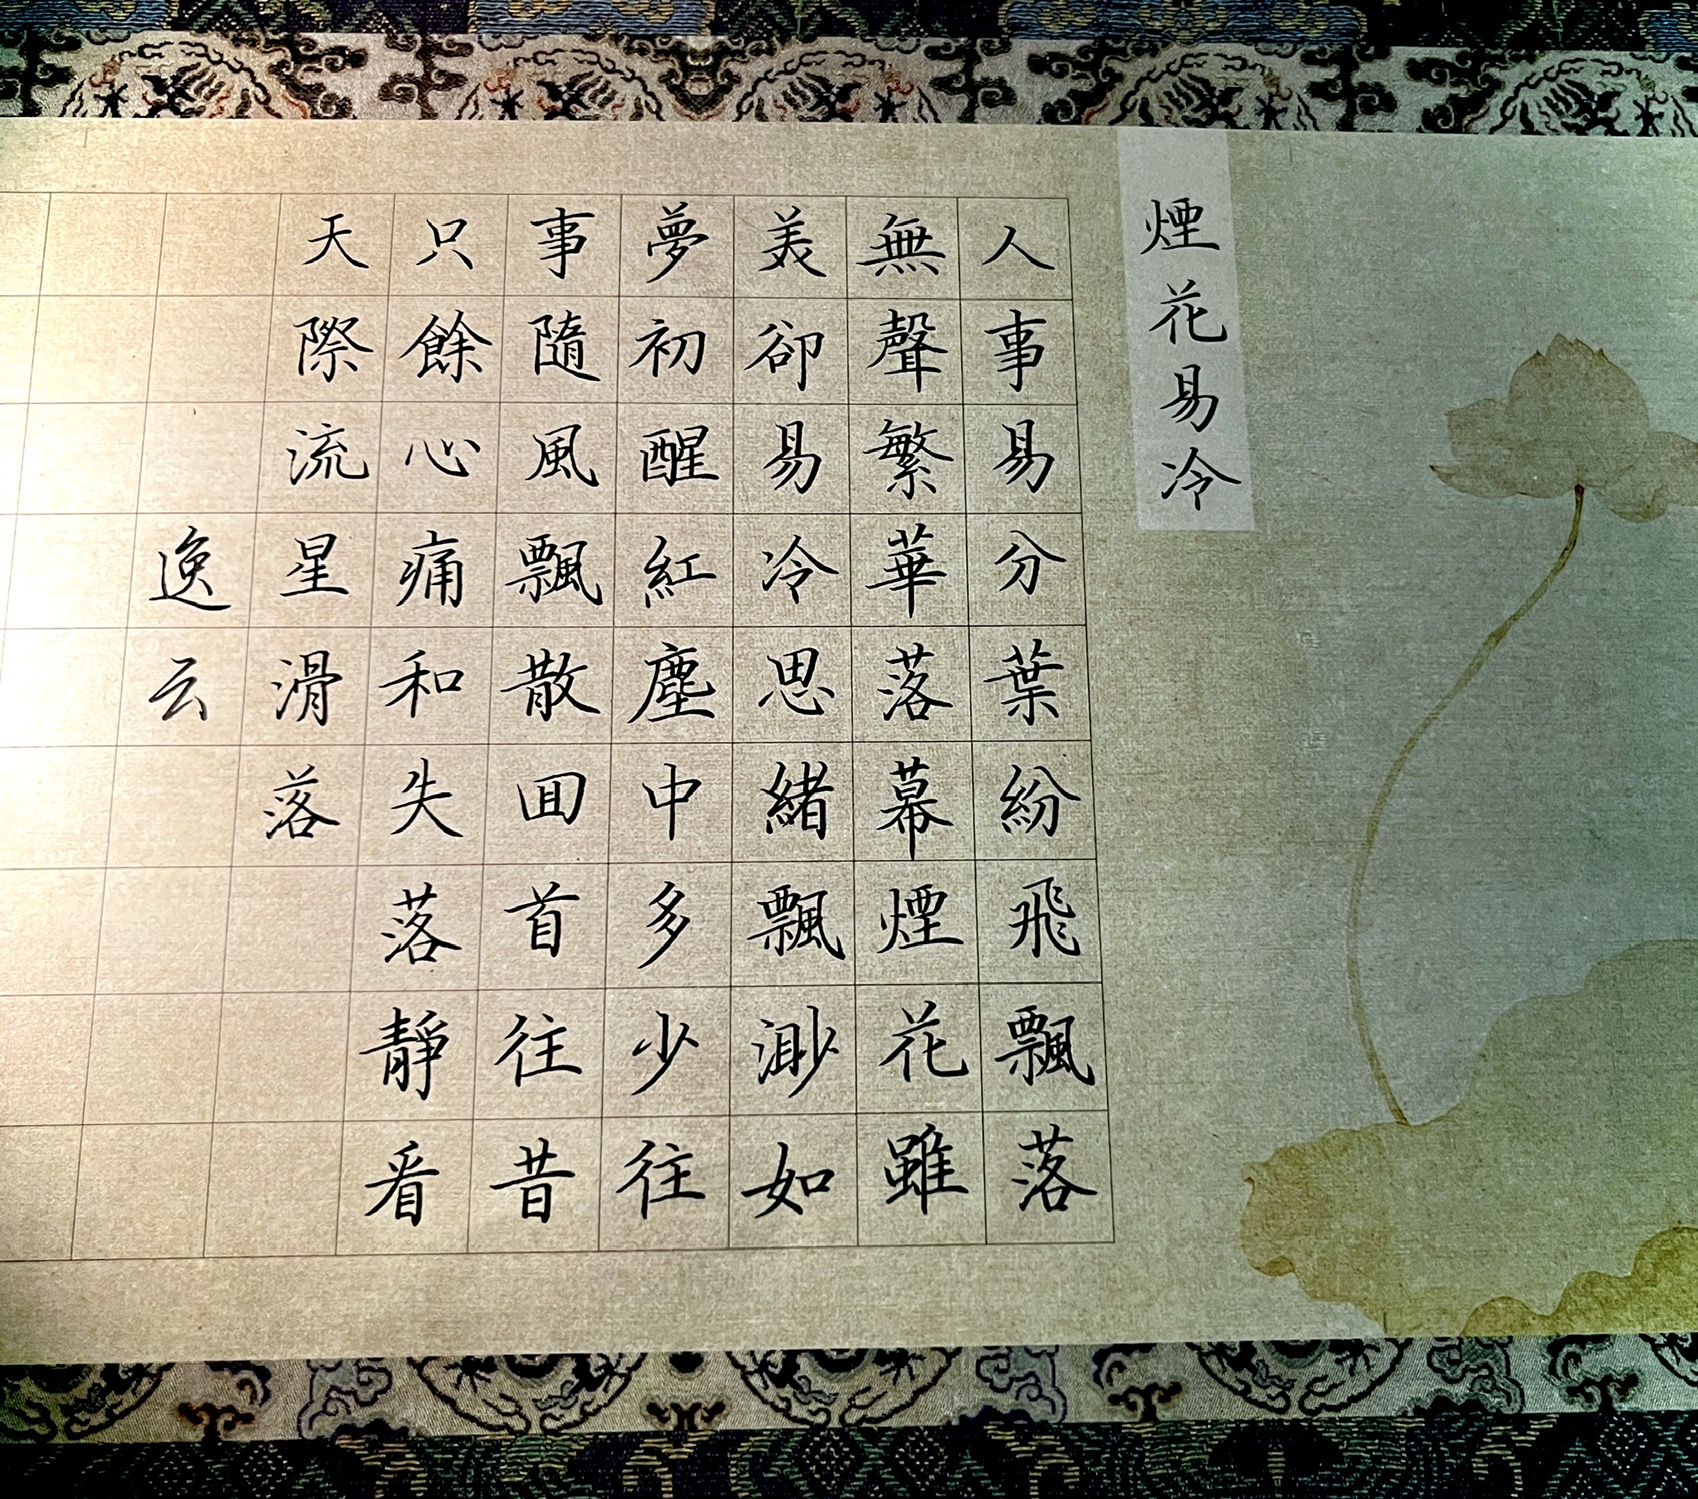 煙花易冷
人事易分葉紛飛飄落
無聲繁華落幕煙花雖
美卻易冷思緒飄渺如
夢初醒紅塵中多少往
事隨風飄散回首往昔
只餘心痛和失落靜看
天際流星滑落
逸云